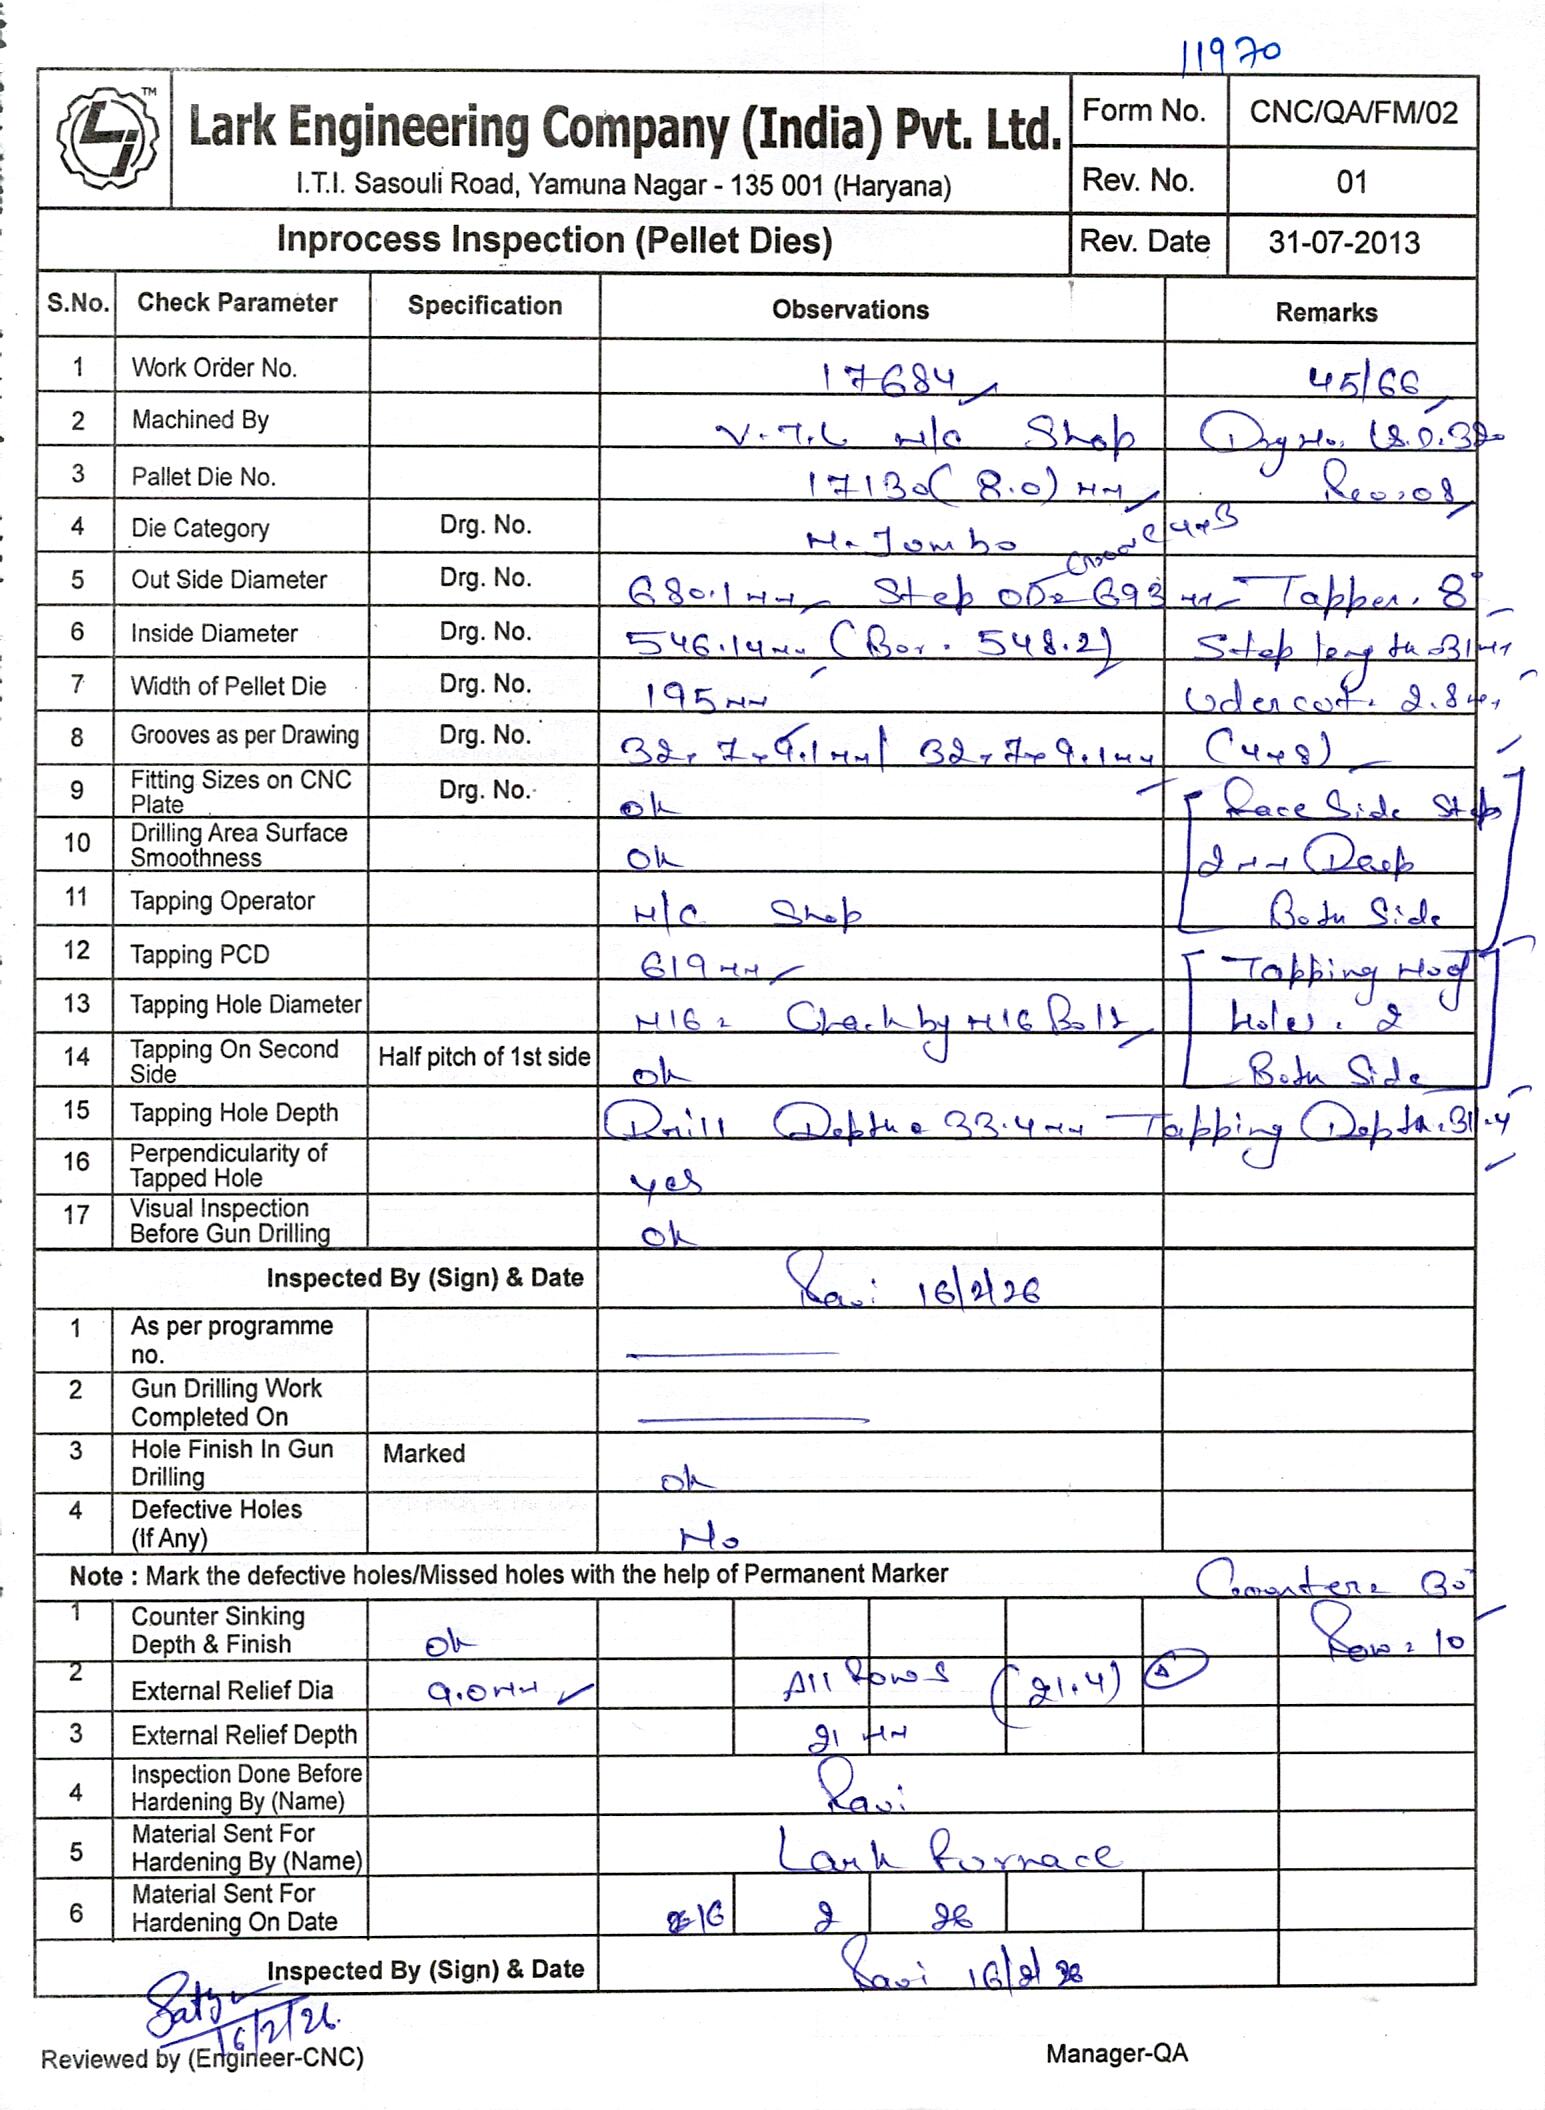 11970
Lark Engineering Company (India) Pvt. Ltd.
I.T.I. Sasouli Road, Yamuna Nagar - 135 001 (Haryana)
Form No. CNC/QA/FM/02
Rev. No. 01
Inprocess Inspection (Pellet Dies) Rev. Date 31-07-2013
S.No. Check Parameter Specification Observations Remarks
1 Work Order No. 17684 45/66
2 Machined By V.T.L M/C Shop Drg No.
3 Pallet Die No. 17130 (8.0) MM Rev.08
4 Die Category Drg. No. M. Jombo
5 Out Side Diameter Drg. No. 680.1 MM Step OD= 693 MM Tapper. 8°
6 Inside Diameter Drg. No. 546.14 MM (Bor. 548.2) Step length 31 MM
7 Width of Pellet Die Drg. No. 195 MM Udercut. 2.8 MM
8 Grooves as per Drawing Drg. No. 32x7x9.1 MM / 32x7x9.1 MM (4x8)
9 Fitting Sizes on CNC Plate Drg. No. ok Race Side Step
10 Drilling Area Surface Smoothness ok 2 MM Deep
11 Tapping Operator M/C Shop Both Side
12 Tapping PCD 619 MM Tapping
13 Tapping Hole Diameter M16 = Check by M16 Bolt Holes. 2
14 Tapping On Second Side Half pitch of 1st side ok Both Side
15 Tapping Hole Depth Drill Depth = 33.4 MM Tapping Depth. 31.4
16 Perpendicularity of Tapped Hole yes
17 Visual Inspection Before Gun Drilling ok
Inspected By (Sign) & Date Ravi 16/2/26
1 As per programme no.
2 Gun Drilling Work Completed On
3 Hole Finish In Gun Drilling Marked ok
4 Defective Holes (If Any) No
Note : Mark the defective holes/Missed holes with the help of Permanent Marker Counter = 30°
1 Counter Sinking Depth & Finish ok Row = 10
2 External Relief Dia 9.0 MM All Rows (21.4) A
3 External Relief Depth 21 MM
4 Inspection Done Before Hardening By (Name) Ravi
5 Material Sent For Hardening By (Name) Lark Furnace
6 Material Sent For Hardening On Date 16 2 26
Inspected By (Sign) & Date Ravi 16/2/26
16/2/26.
Reviewed by (Engineer-CNC) Manager-QA